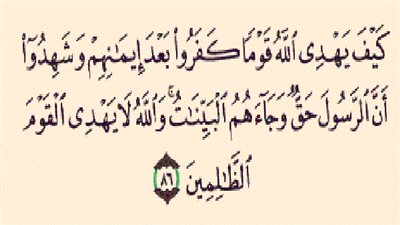 كَيْفَ يَهْدِى ٱللَّهُ قَوْمًا كَفَرُوا۟ بَعْدَ إِيمَـٰنِهِمْ وَشَهِدُوٓا۟
أَنَّ ٱلرَّسُولَ حَقٌّ وَجَآءَهُمُ ٱلْبَيِّنَـٰتُ ۚ وَٱللَّهُ لَا يَهْدِى ٱلْقَوْمَ
ٱلظَّـٰلِمِينَ ٨٦